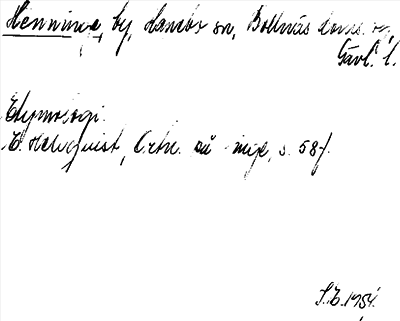 Henninge, by, Hanebo sn, Bollnäs doms. og,
Gävl. l.
Etymologi.
E. Hellquist, Ortn. på -inge, s. 58 f.
S.B. 1954.